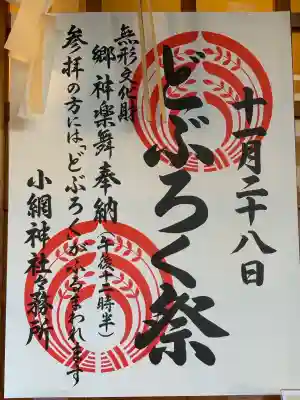 十一月二十八日
どぶろく祭
無形文化財
郷神楽舞奉納(午後十二時半)
参拝の方には「どぶろく」がふるまわれます
小網神社々務所